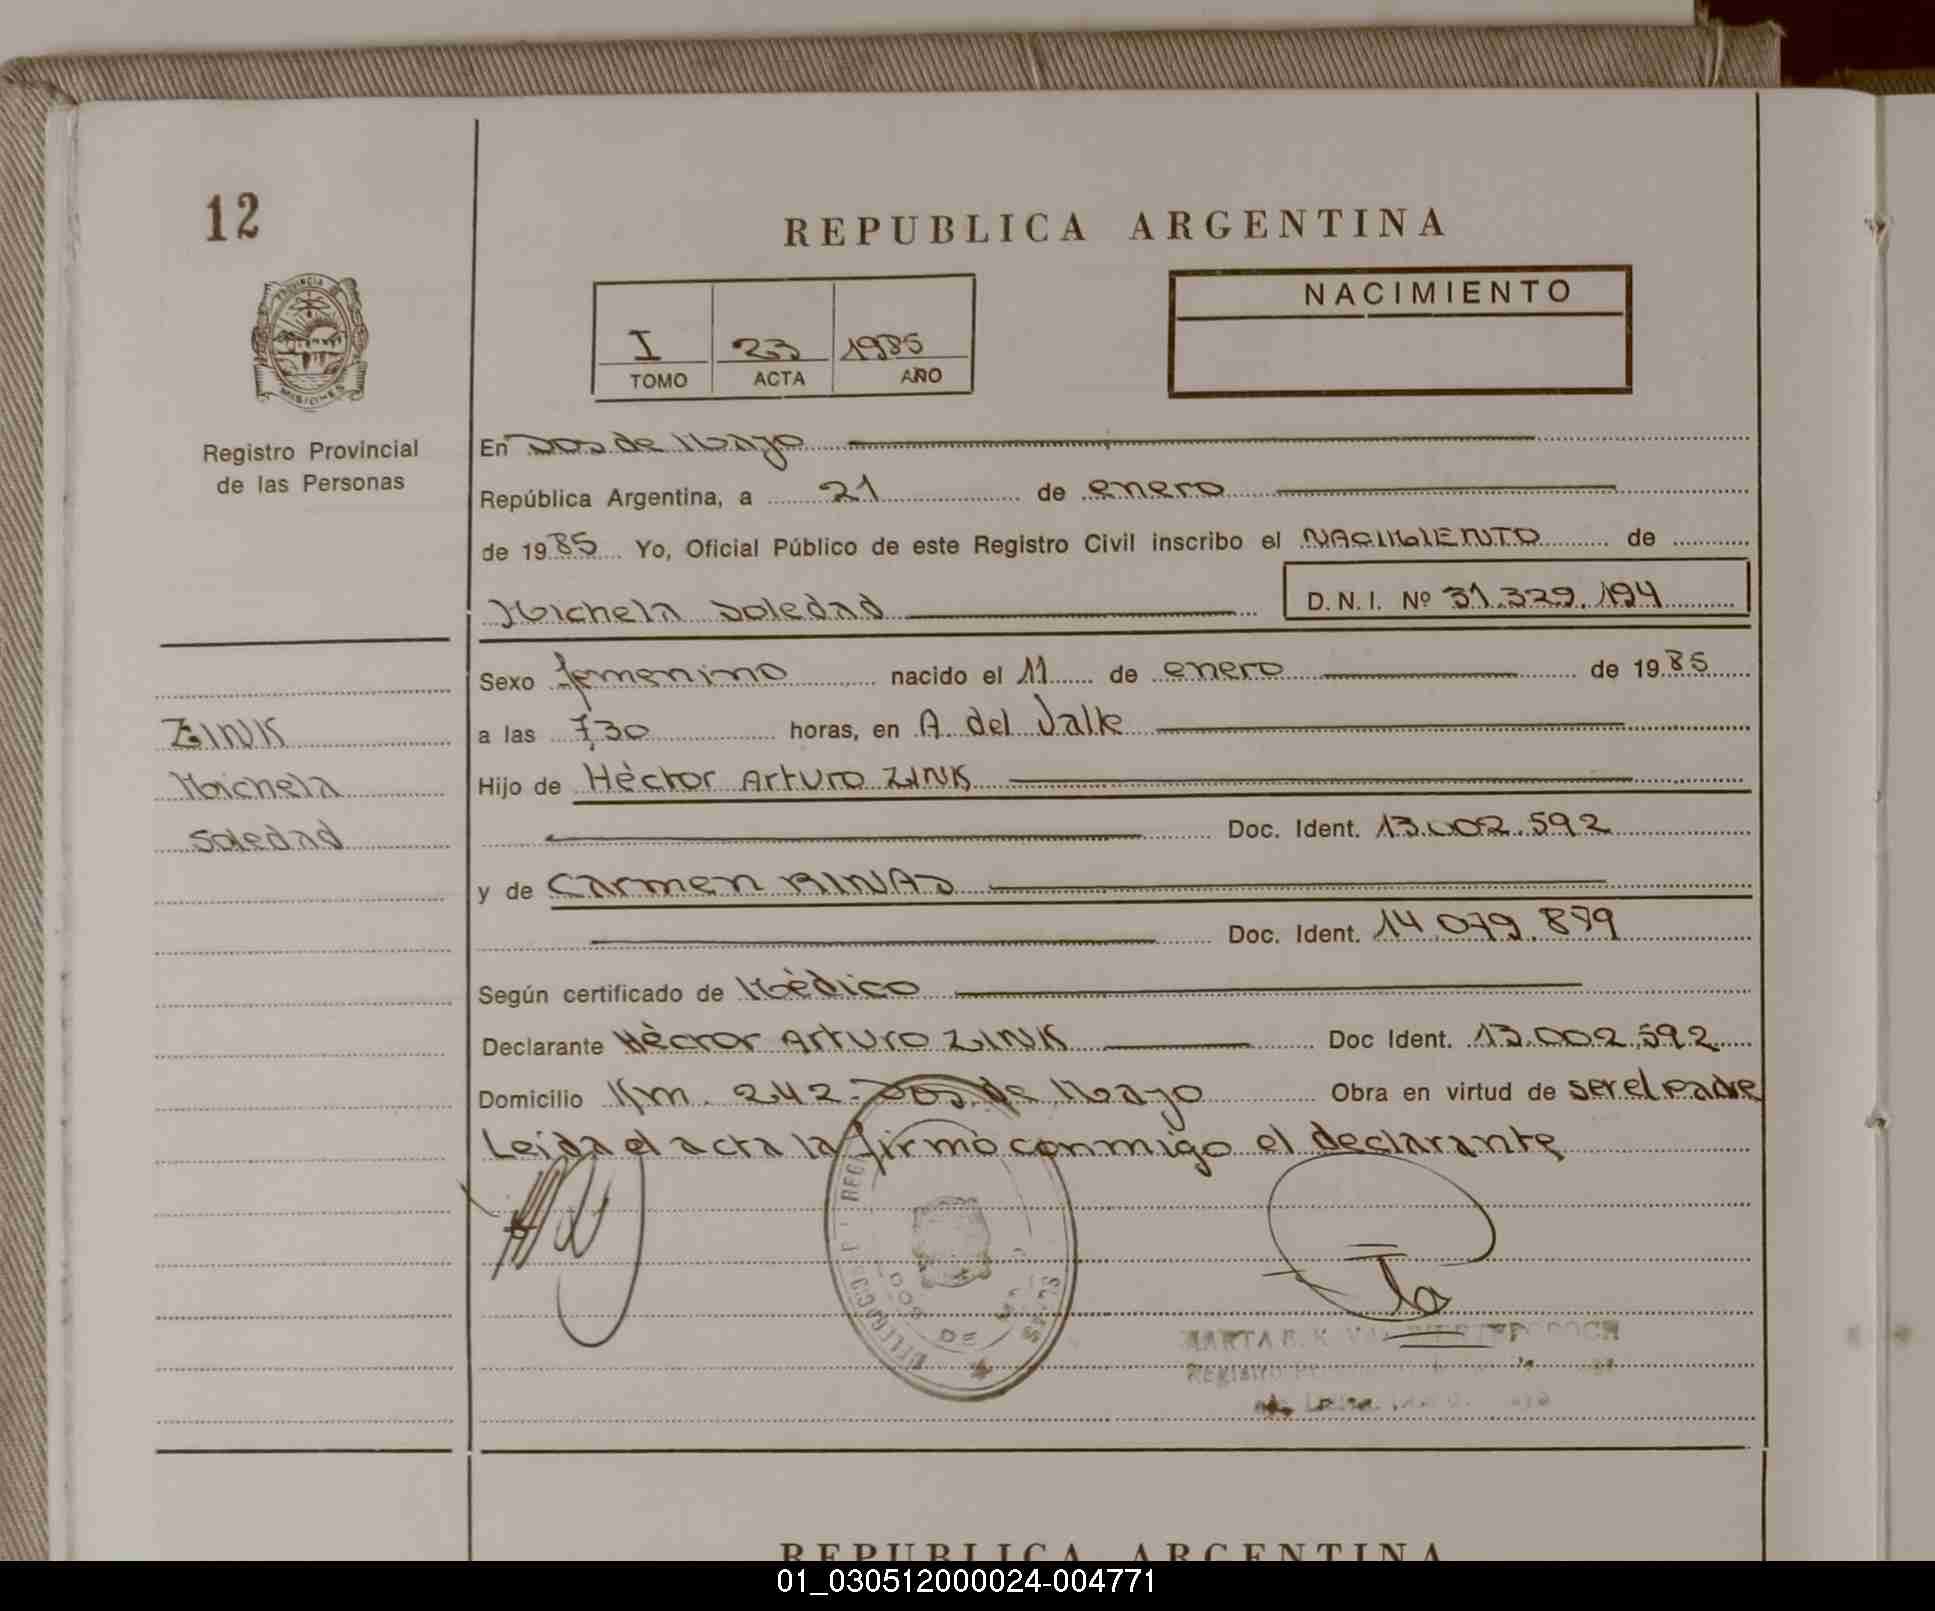 12
REPUBLICA ARGENTINA
NACIMIENTO
I 23 1985
TOMO ACTA AÑO
PROVINCIA DE
MISIONES
Registro Provincial
de las Personas
En Dos de Mayo
República Argentina, a 21 de enero
de 1985 Yo, Oficial Público de este Registro Civil inscribo el NACIMIENTO de
Michela Soledad D.N.I. Nº 31.329.194
Sexo femenino nacido el 11 de enero de 1985
a las 7,30 horas, en A. del Valle
Hijo de Hèctor Arturo ZINK
Doc. Ident. 13.002.592
y de Carmen RINAS
Doc. Ident. 14.079.879
Según certificado de Mèdico
Declarante Hèctor Arturo ZINK Doc Ident. 13.002.592
Domicilio Km. 242- Dos de Mayo Obra en virtud de ser el padre
Leida el acta la firmò conmigo el declarante
ZINK
Michela
Soledad
DE
MARTA
REPUBLICA ARGENTINA
01_030512000024-004771